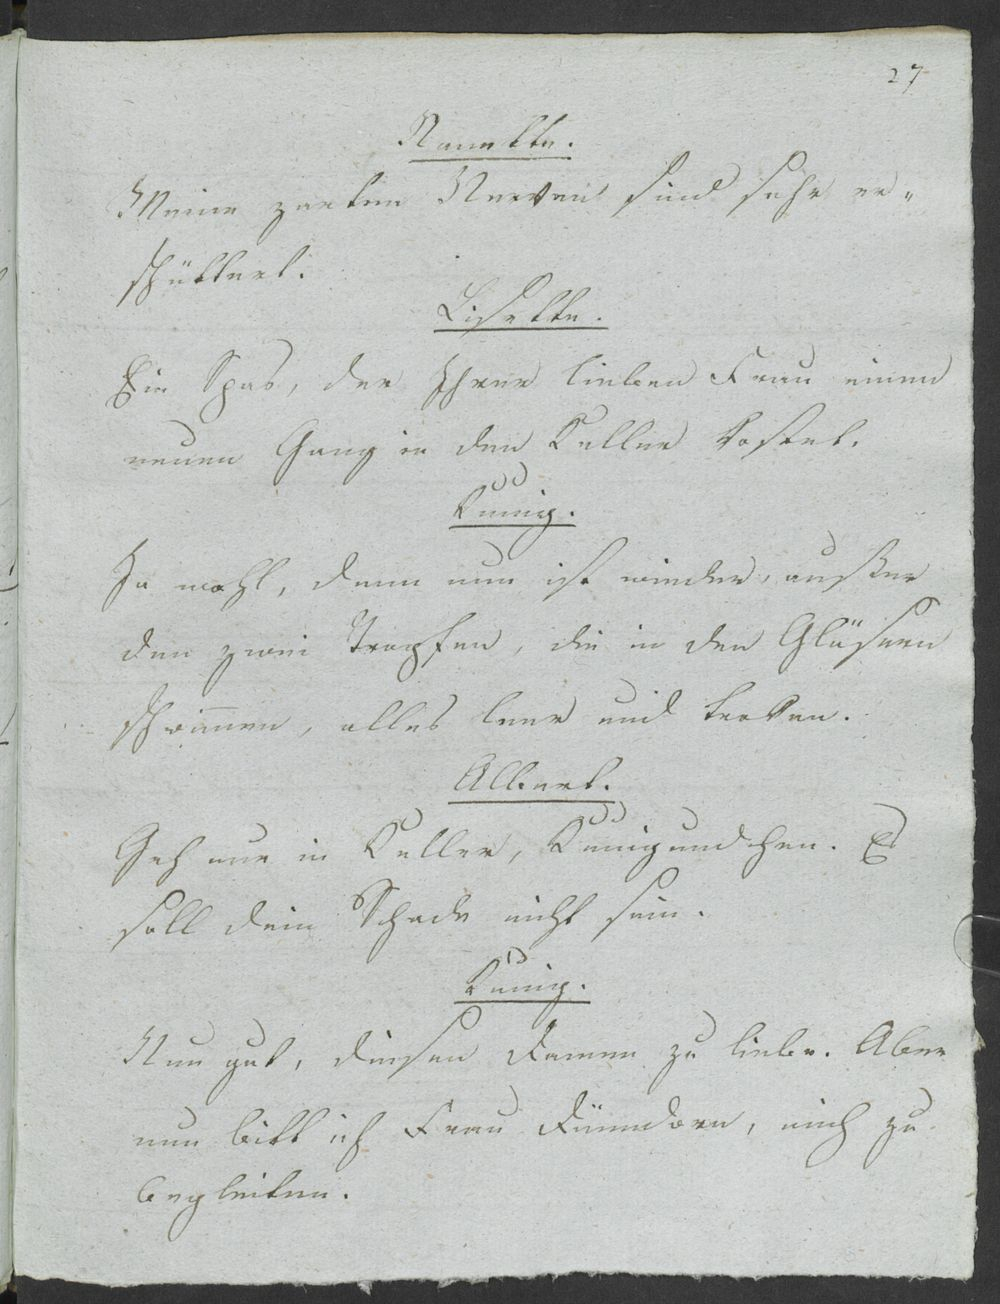 27
Nanette.
Meine zarten Nerven sind sehr er-
schüttert.
Lisette.
Ein Spas, der Ihrer lieben Frau einen
neuen Gang in den Keller kostet.
Kunig.
Ja wohl, denn nun ist wieder, außer
den zwei Tropfen, die in den Gläsern
schwimmen, alles leer und trocken.
Albert.
Geh nur in Keller, Kunigundchen. Es
soll dein Schade nicht sein.
Kunig.
Nun gut, diesen Damen zu liebe. Aber
nun bitt ich Frau, mich zu
begleiten.